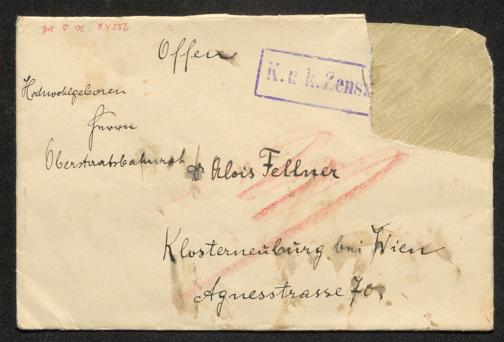 Offen
K. u. k. Zens
Hochwohlgeboren
Herrn
Oberstaatsbahnrath Dr Alois Fellner
Klosterneuburg bei Wien
Agnesstrasse 70.